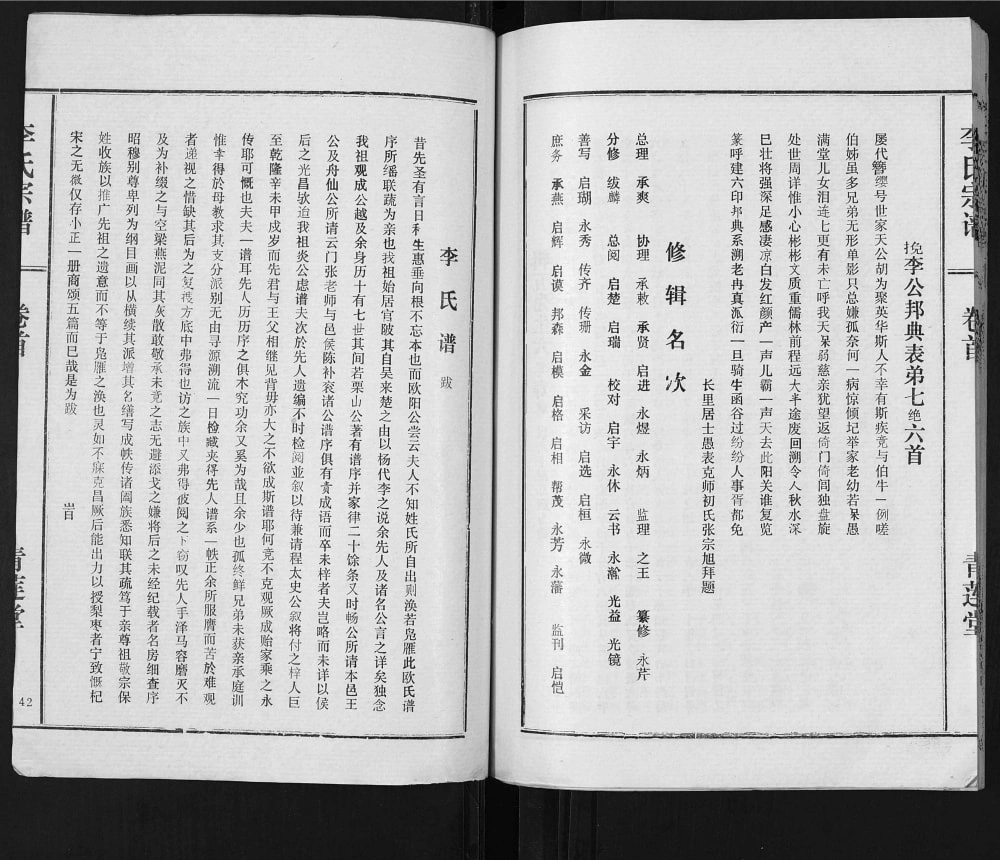 李氏宗谱 卷首 青莲堂
挽李公邦典表弟七绝六首
屡代簪缨号世家天公胡为聚英华斯人不幸有斯疾竞与伯牛一例嗟
伯姊虽多兄弟无形单影只总嫌孤奈何一病惊倾圮举家老幼若呆愚
满堂儿女泪连七更有未亡呼我天呆弱慈亲犹望返倚门倚闾独盘旋
处世周详惟小心彬彬文质重儒林前程远大半途废回溯令人秋水深
巳壮将强深足感凄凉白发红颜产一声儿霸一声天去此阳关谁复览
篆呼建六印邦典系溯老冉真派衍一旦骑牛函谷过纷纷人事胥都免
长里居士愚表克师初氏张宗旭拜题
修辑名次
总理 承爽 协理 承敕 承贤 启进 永煜 永炳 监理 之王 纂修 永芹
分修 绂麟 总阅 启楚 启瑞 校对 启宇 永休 云书 永瀹 光益 光镜
善写 启瑚 永秀 传齐 传珊 永金 采访 启选 启桓 永微
庶务 承燕 启辉 启谟 邦森 启模 启格 启相 帮茂 永芳 永藩 监刊 启恺
李氏谱 跋
昔先圣有言日利生惠垂向根不忘本也而欧阳公尝云夫人不知姓氏所自出则涣若凫雁此欧氏谱
序所繙联疏为亲也我祖始居官陂其自吴来楚之由以杨代李之说余先人及诸名公言之详矣独念
我祖观成公越及余身历十有七世其间若栗山公著有谱序并家律二十馀条又时畅公所请本邑王
公及舟仙公所请云门张老师与邑侯陈补衮诸公谱序俱有贵成语而卒未梓者夫岂略而未详以俟
后之光昌欤迨我祖炎公虑谱夫次於先人遗编不时检阅並叙以待兼请程太史公叙将付之梓人巨
至乾隆辛未甲戍岁而先君与王父相继见背毋亦大之不欲成斯谱耶何竞不克观厥成贻家乘之永
传耶可慨也夫夫一谱耳先人历历序之俱木究功余又奚为哉且余少也孤终鲜兄弟未获亲承庭训
惟幸得於母教求其支分派别无由寻源溯流一日检臧夹得先人谱系一帙正余所服膺而苦於难观
者递视之惜缺其后为之复殘方底中弗得也访之族中又弗得彼阅之下窃叹先人手泽马容磨灭不
及为补缀之与空梁燕泥同其灰散敢敬承未竞之志无避添戈之嫌将后之未经纪载者名房细查序
昭穆别尊卑列为纲目画以从横续其派增其名缮写成帙传诸阖族悉知联其疏笃于亲尊祖敬宗保
姓收族以推广先祖之遗意而不等于凫雁之涣也灵如不寐克昌厥后能出力以授梨枣者宁致慨杞
宋之无微仅存小正一册商颂五篇而巳哉是为跋
李氏宗谱 卷首 青莲堂
42